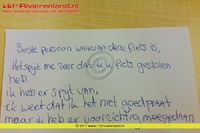 112Rivierenland.nl
Beste persoon waarvan deze fiets is,
Het spijt me zeer dat ik u fiets gestolen
heb.
ik heb er spijt van.
ik weet dat ik het niet goedpraat
maar ik heb er voorzichtig meegedaan
© 2017 www.112rivierenland.nl